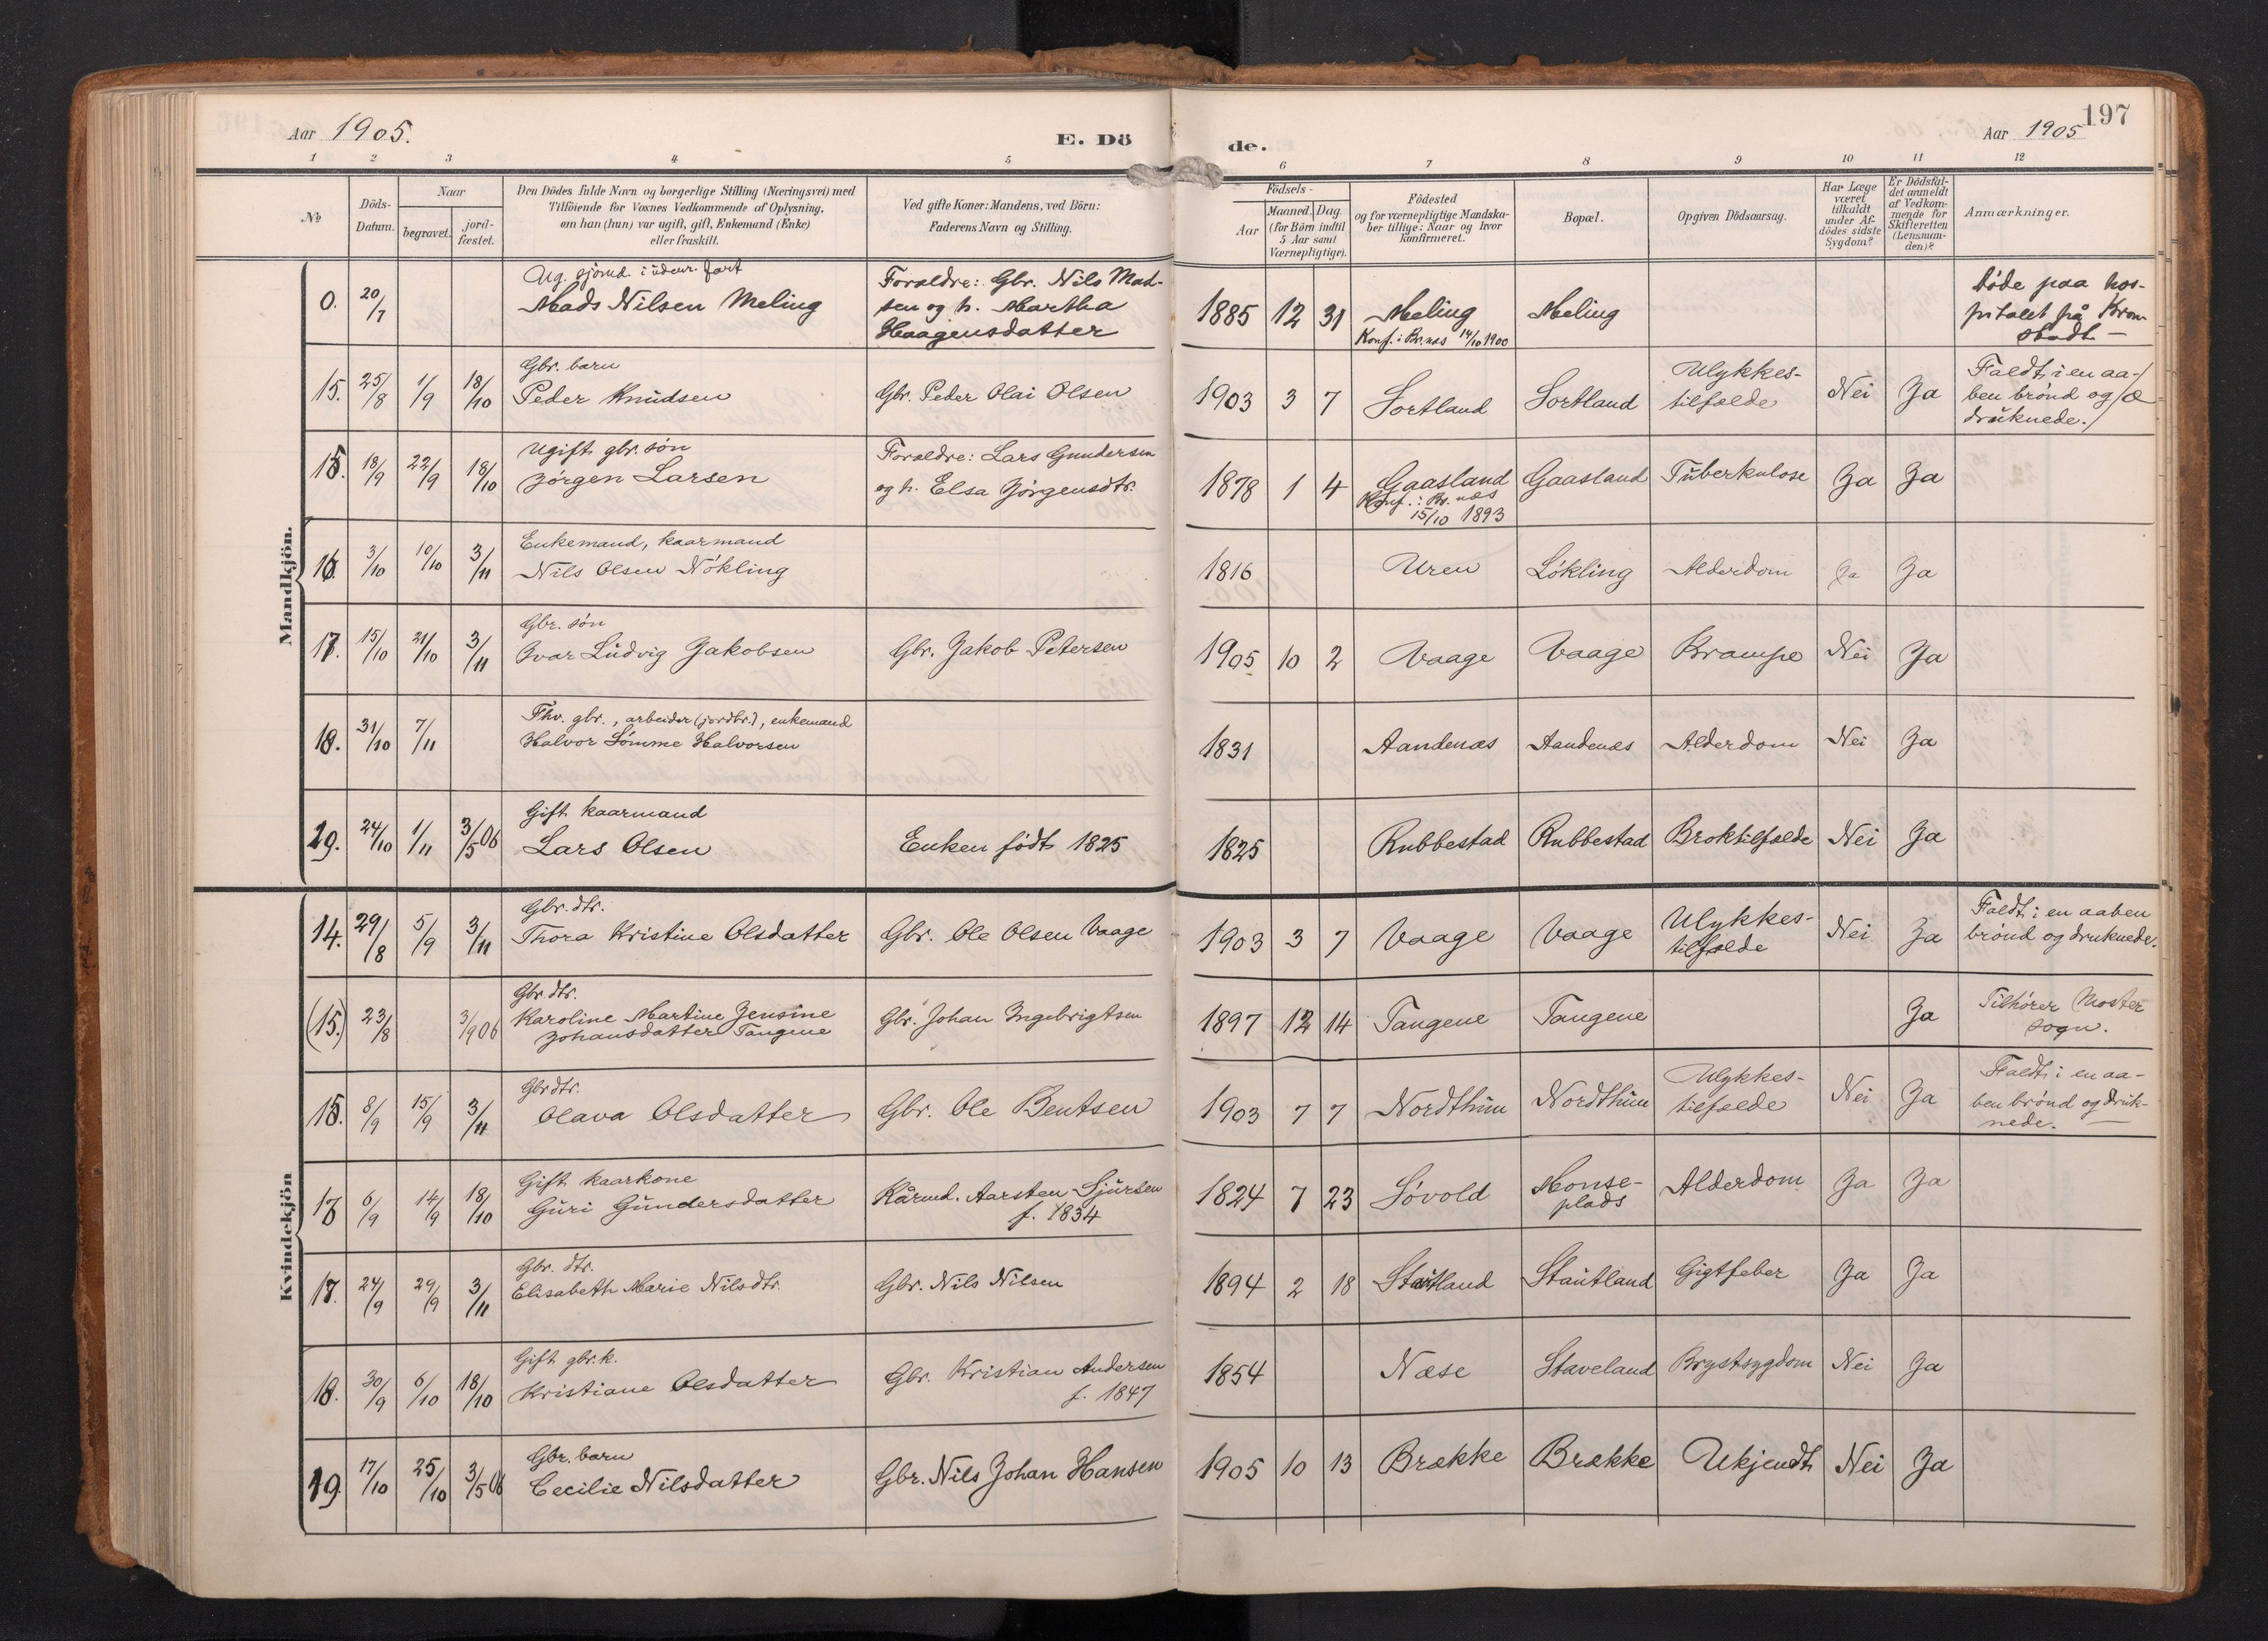 Aar 1905.
E. Dö
de.
Aar 1905
197
1 2 3 4 5 6 7 8 9 10 11 12
№
Döds-
Datum.
Naar
begravet.
jord-
fæstet.
Den Dödes fulde Navn og borgerlige Stilling (Næringsvei) med
Tilföiende for Voxnes Vedkommende af Oplysning,
om han (hun) var ugift, gift, Enkemand (Enke)
eller fraskilt.
Ved gifte Koner: Mandens, ved Börn:
Faderens Navn og Stilling.
Födsels-
Aar
Maaned. Dag.
(for Börn indtil
5 Aar samt
Værnepligtige).
Födested
og for værnepligtige Mandska-
ber tillige: Naar og hvor
konfirmeret.
Bopæl.
Opgiven Dödsaarsag.
Har Læge
været
tilkaldt
under Af-
dödes sidste
Sygdom?
Er Dödsfal-
det anmeldt
af Vedkom-
mende for
Skifteretten
(Lensman-
den)?
Anmærkninger.
Mandkjön.
0. 20/7
Ug. sjömd. i udenr. fart
Mads Nilsen Meling
Forældre: Gbr. Nils Mad-
sen og h. Martha
Haagensdatter
1885 12 31 Meling
Konf. i Br.næs 14/10 1900
Meling
döde paa hos-
pitalet på Kron
stadt —
15. 25/8 1/9 18/10
Gbr. barn
Peder Knudsen
Gbr. Peder Olai Olsen
1903 3 7 Sortland Sortland
Ulykkes-
tilfælde
Nei Ja
Faldt i en aa-
ben brönd og
druknede.
15. 18/9 22/9 18/10
Ugift gbr. sön
Jörgen Larsen
Forældre: Lars Gundersen
og h. Elsa Jörgensdtr.
1878 1 4 Gaasland
Konf. i Br. næs
15/10 1893
Gaasland Tuberkulose Ja Ja
16. 3/10 10/10 3/11
Enkemand, kaarmand
Nils Olsen Nökling
1816 Uren Lökling Alderdom Ja Ja
17. 15/10 21/10 3/11
Gbr. sön
Ivar Ludvig Jakobsen
Gbr. Jakob Petersen
1905 10 2 Vaage Vaage Krampe Nei Ja
18. 31/10 7/11
Fhv. gbr., arbeider (jordbr.), enkemand
Halvor Sömme Halvorsen
1831 Aandenæs Aandenæs Alderdom Nei Ja
19. 24/10 1/11 3/5 06
Gift kaarmand
Lars Olsen
Enken födt 1825
1825 Rubbestad Rubbestad Broktilfælde Nei Ja
Kvindekjön
14. 29/8 5/9 3/11
Gbr. dtr.
Thora Kristine Olsdatter
Gbr. Ole Olsen Vaage
1903 3 7 Vaage Vaage
Ulykkes-
tilfælde
Nei Ja
Faldt i en aaben
brönd og druknede.
(15.) 23/8 3/9 06
Gbr. dtr.
Karoline Martine Jensine
Johansdatter Tangene
Gbr. Johan Ingebrigtsen
1897 12 14 Tangene Tangene Ja
Tilhörer Moster
sogn.
15. 8/9 15/9 3/11
Gbr dtr.
Olava Olsdatter
Gbr. Ole Bentsen
1903 7 7 Nordthun Nordthun
Ulykkes-
tilfælde
Nei Ja
Faldt i en aa-
ben brönd og druk-
nede. —
16 6/9 14/9 18/10
Gift kaarkone
Guri Gundersdatter
Kårmd. Aarsten Sjursen
f. 1834
1824 7 23 Sövold
Monse-
plads
Alderdom Ja Ja
17. 24/9 29/9 3/11
Gbr. dtr.
Elisabeth Marie Nilsdtr.
Gbr. Nils Nilsen
1894 2 18 Stautland Stautland Gigtfeber Ja Ja
18. 30/9 6/10 18/10
Gift gbr. k.
Kristiane Olsdatter
Gbr. Kristian Andersen
f. 1847
1854 Næse Staveland Brystsygdom Nei Ja
19. 17/10 25/10 3/5 06
Gbr. barn
Cecilie Nilsdatter
Gbr. Nils Johan Hansen
1905 10 13 Brække Brække Ukjendt Nei Ja